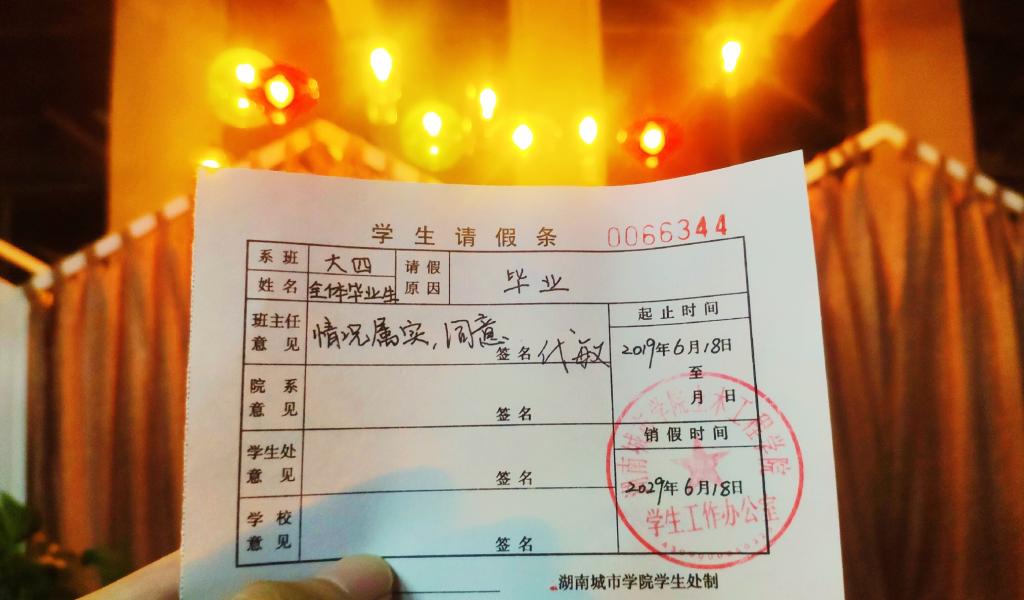 学生请假条 0066344
系班 大四 请假原因 毕业
姓名 全体毕业生
班主任意见 情况属实，同意 签名 代敏
起止时间
2019年6月18日
至
月 日
院系意见 签名
销假时间
2029年6月18日
学生处意见 签名
学校意见 签名
湖南城市学院土木工程学院
学生工作办公室
湖南城市学院学生处制